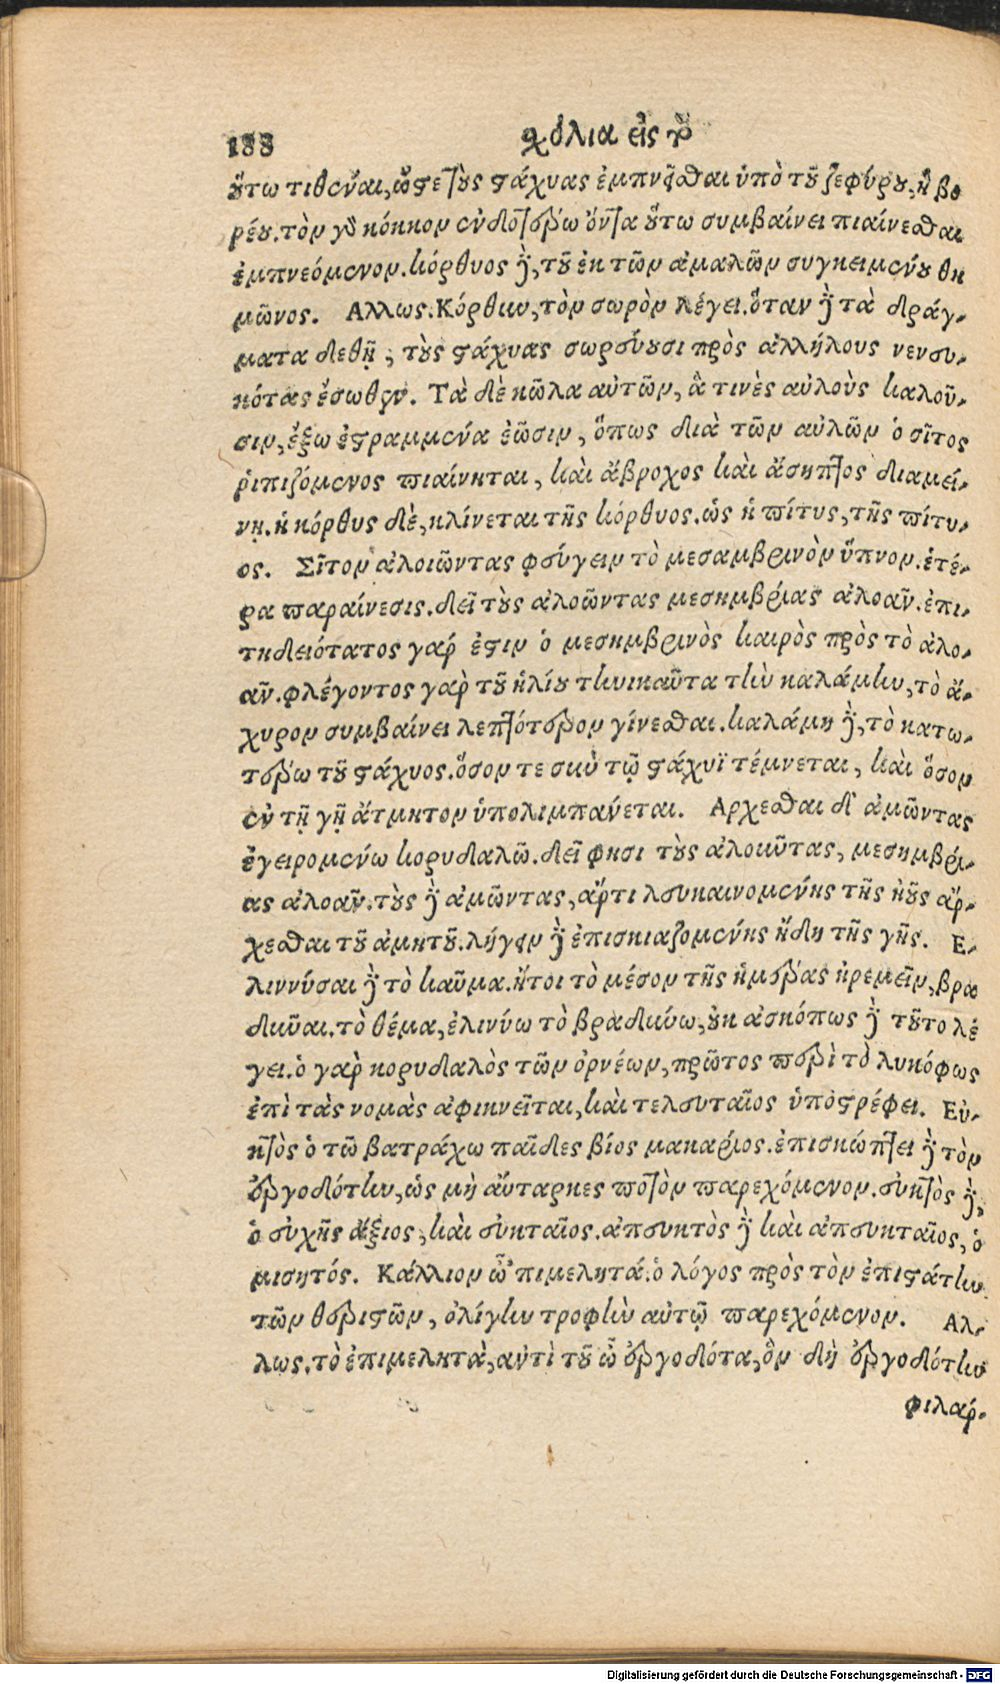 188 σχόλια εἰς τὸ
οὕτω τιθέναι, ὥστε τοὺς στάχυας ἐμπνεῖσθαι ὑπὸ τοῦ ζεφύρου, ἢ βο
ρέου. τὸν γὰρ κόκκον ἐνδοτέρω ὄντα οὕτω συμβαίνει πιαίνεσθαι
ἐμπνεόμενον. κόρθυος δὲ, τοῦ ἐκ τῶν ἀμαλῶν συγκειμένου θη
μῶνος. Αλλως. Κόρθυν, τὸν σωρὸν λέγει. ὅταν δὲ τὰ δράγ-
ματα δεθῇ, τοὺς στάχυας σωρεύουσι πρὸς ἀλλήλους νενευ-
κότας ἔσωθεν. Τὰ δὲ κῶλα αὐτῶν, ἅ τινὲς αὐλοὺς καλοῦ-
σιν, ἔξω ἐστραμμένα ἐῶσιν, ὅπως διὰ τῶν αὐλῶν ὁ σῖτος
ῥιπιζόμενος πιαίνηται, καὶ ἄβροχος καὶ ἄσηπτος διαμεί-
νῃ. ἡ κόρθυς δὲ, κλίνεται τῆς κόρθυος. ὡς ἡ πίτυς, τῆς πίτυ-
ος. Σῖτον ἀλοιῶντας φεύγειν τὸ μεσαμβρινὸν ὕπνον. ἑτέ-
ρα παραίνεσις. δεῖ τοὺς ἀλοῶντας μεσημβρίας ἀλοᾶν. ἐπι-
τηδειότατος γάρ ἐστιν ὁ μεσημβρινὸς καιρὸς πρὸς τὸ ἀλο-
ᾶν. φλέγοντος γὰρ τοῦ ἡλίου τηνικαῦτα τὴν καλάμην, τὸ ἄ-
χυρον συμβαίνει λεπτότερον γίνεσθαι. καλάμη δὲ, τὸ κατω-
τέρω τοῦ στάχυος. ὅσον τε σὺν τῷ στάχυϊ τέμνεται, καὶ ὅσον
ἐν τῇ γῇ ἄτμητον ὑπολιμπάνεται. Αρχεσθαι δ' ἀμῶντας
ἐγειρομένω κορυδαλῶ. δεῖ φησι τοὺς ἀλοιῶντας, μεσημβρί-
ας ἀλοᾶν. τοὺς δὲ ἀμῶντας, ἄρτι λευκαινομένης τῆς ἠοῦς ἄρ-
χεσθαι τοῦ ἀμητοῦ. λήγειν δὲ ἐπισκιαζομένης ἤδη τῆς γῆς. Ε-
λιννύσαι δὲ τὸ καῦμα. ἤτοι τὸ μέσον τῆς ἡμέρας ἠρεμεῖν, βρα
δῦναι. τὸ θέμα, ἐλινύω τὸ βραδύνω, οὐκ ἀσκόπως δὲ τοῦτο λέ
γει. ὁ γὰρ κορυδαλὸς τῶν ὀρνέων, πρῶτος περὶ τὸ λυκόφως
ἐπὶ τὰς νομὰς ἀφικνεῖται, καὶ τελευταῖος ὑποστρέφει. Εὐ-
κτὸς ὁ τῶ βατράχω παῖδες βίος μακάριος. ἐπισκώπτει δὲ τὸν
ἐργοδότην, ὡς μὴ αὔταρκες ποτὸν παρεχόμενον. εὐκτὸς δὲ,
ὁ εὐχῆς ἄξιος, καὶ εὐκταῖος. ἀπευκτὸς δὲ καὶ ἀπευκταῖος, ὁ
μισητός. Κάλλιον ὦ 'πιμελητά. ὁ λόγος πρὸς τὸν ἐπιστάτην
τῶν θεριστῶν, ὀλίγην τροφὴν αὐτῷ παρεχόμενον. Αλ-
λως. τὸ ἐπιμελητὰ, ἀντὶ τοῦ ὦ ἐργοδότα, ὃν δὴ ἐργοδότην
φιλαρ-
Digitalisierung gefördert durch die Deutsche Forschungsgemeinschaft - DFG